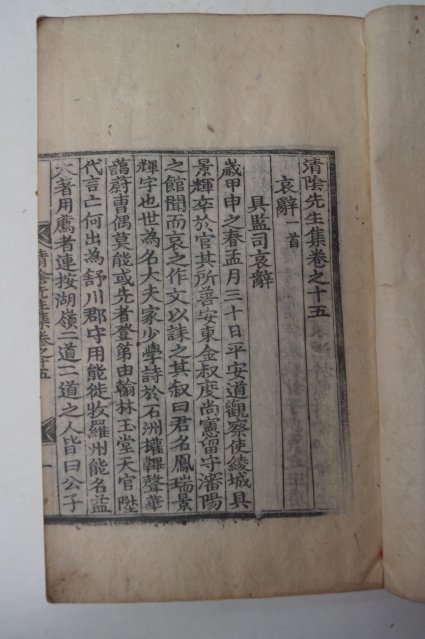 清陰先生集卷之十五
哀辭 首
具監司哀辭
歲甲申之春孟月三十日平安道觀察使綾城具
景輝卒於官其所善安東金叔度尚憲留守瀋陽
之館聞而哀之作文以誄之其叙曰君名鳳瑞景
輝字也世為名大夫家少學詩於石洲權韠聲華
藹蔚曹偶莫能或先者登第由翰林玉堂天官陞
代言亡何出為舒川郡守用能徙牧羅州能名益
大著用薦者連按湖嶺二道二道之人皆曰公子
清陰先生集卷之十五